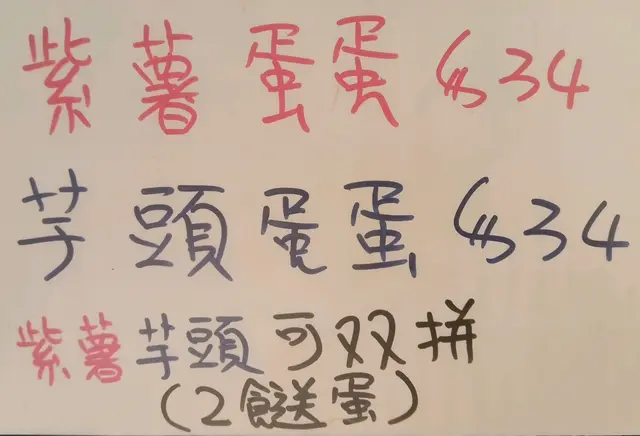 紫薯蛋蛋 $34
芋頭蛋蛋 $34
紫薯芋頭可双拼
(2餸送蛋)